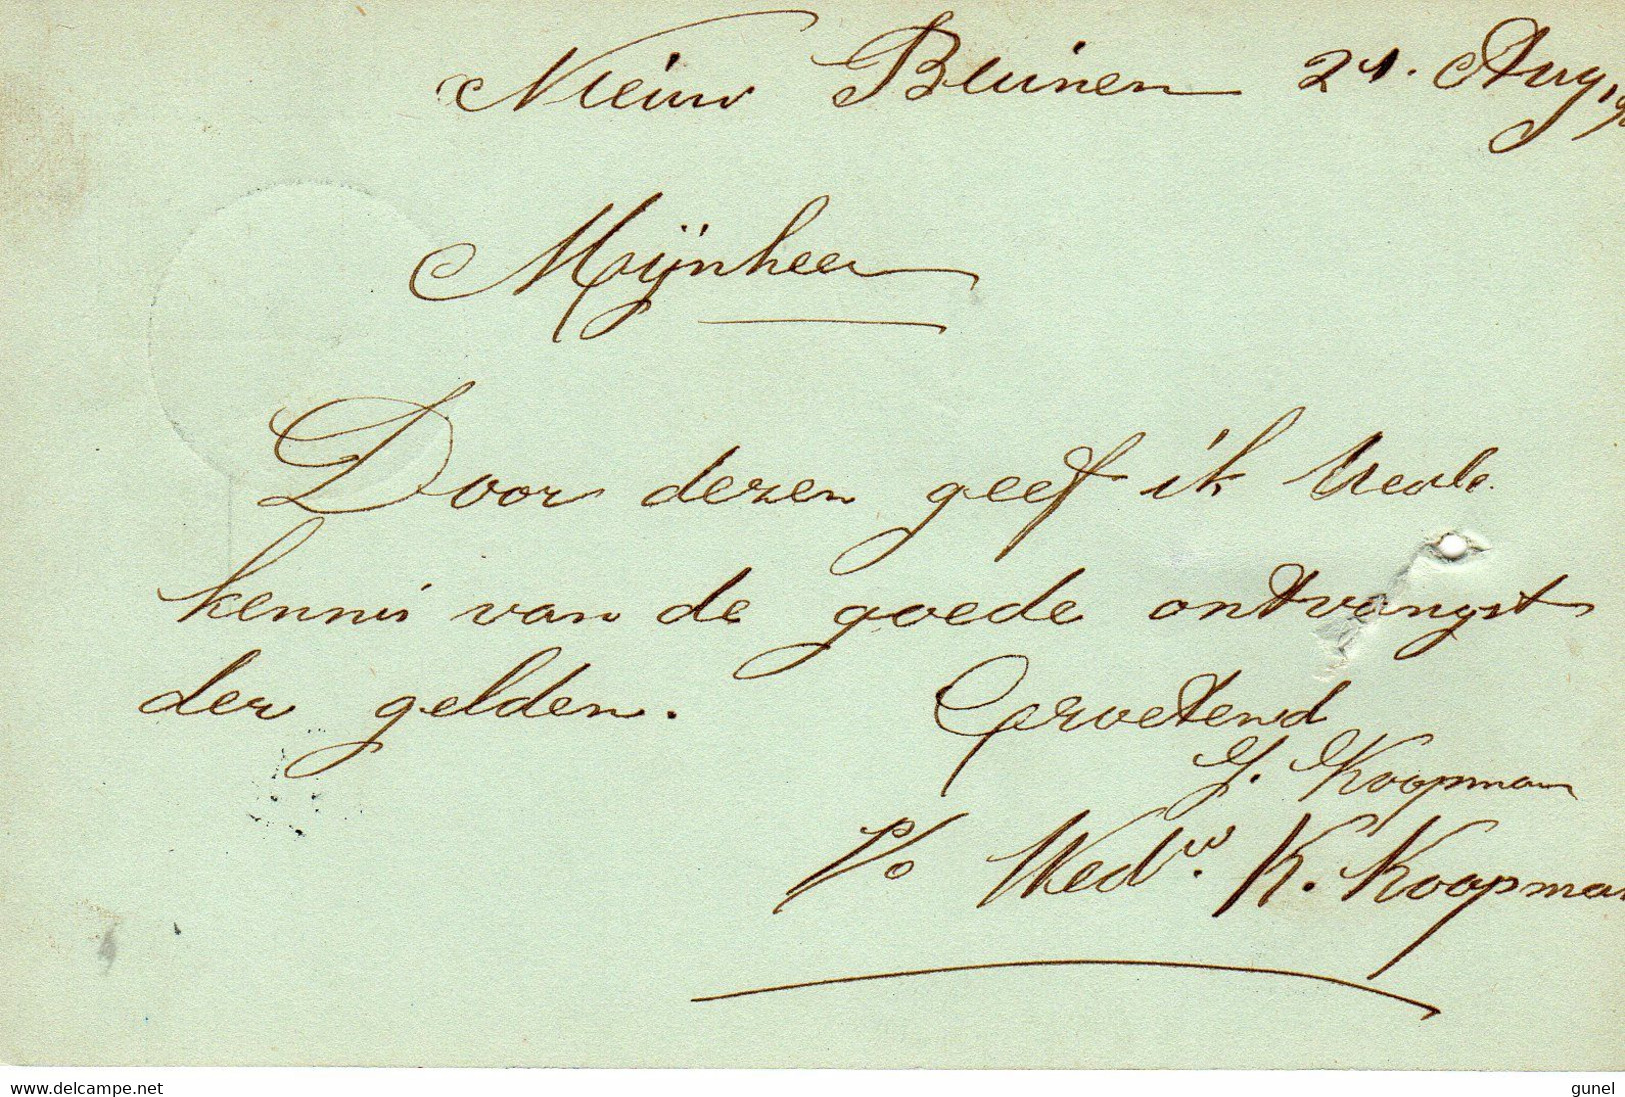 Nieuw Buinen 21. Aug.
Mijnheer
Door dezen geef ik
kennis van de goede ontvangst
der gelden. Groetend
J. Koopman
p/o Wed.w K. Koopman
www.delcampe.net
gunel